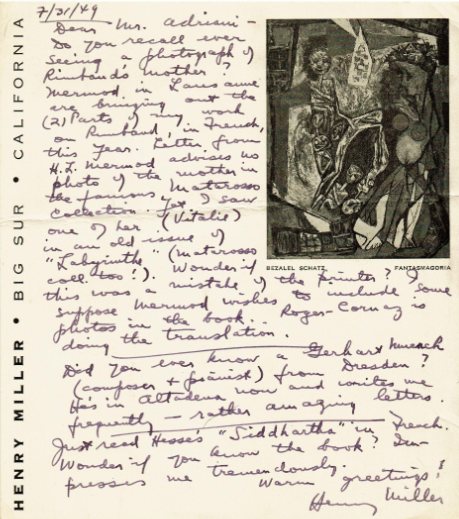 HENRY MILLER • BIG SUR • CALIFORNIA
7/31/49
Dear Mr.
Do you recall ever
seeing a photograph of
Rimbaud's mother?
Mermod, in Lausanne
are bringing out the
(2) Parts of my work
on Rimbaud, in French,
this year. Letter from
H.L. Mermod advises no
photo of the mother in
the famous Matarosso
collection. Yet I saw
one of her (Vitalie)
in an old issue of
"Labyrinthe" (Matarosso
coll. too!). Wonder if
this was a mistake of the printer? I
suppose Mermod wishes to include some
photos in the book. Roger-Cornaz is
doing the translation.
BEZALEL SCHATZ
FANTASMAGORIA
Did you ever know a Gerhart Muench
(composer + pianist) from Dresden?
He's in Altadena now and writes me
frequently – rather amazing letters.
Just read Hesse's "Siddhartha" in French.
Wonder if you know the book? Im-
presses me tremendously.
Warm greetings!
Henry Miller